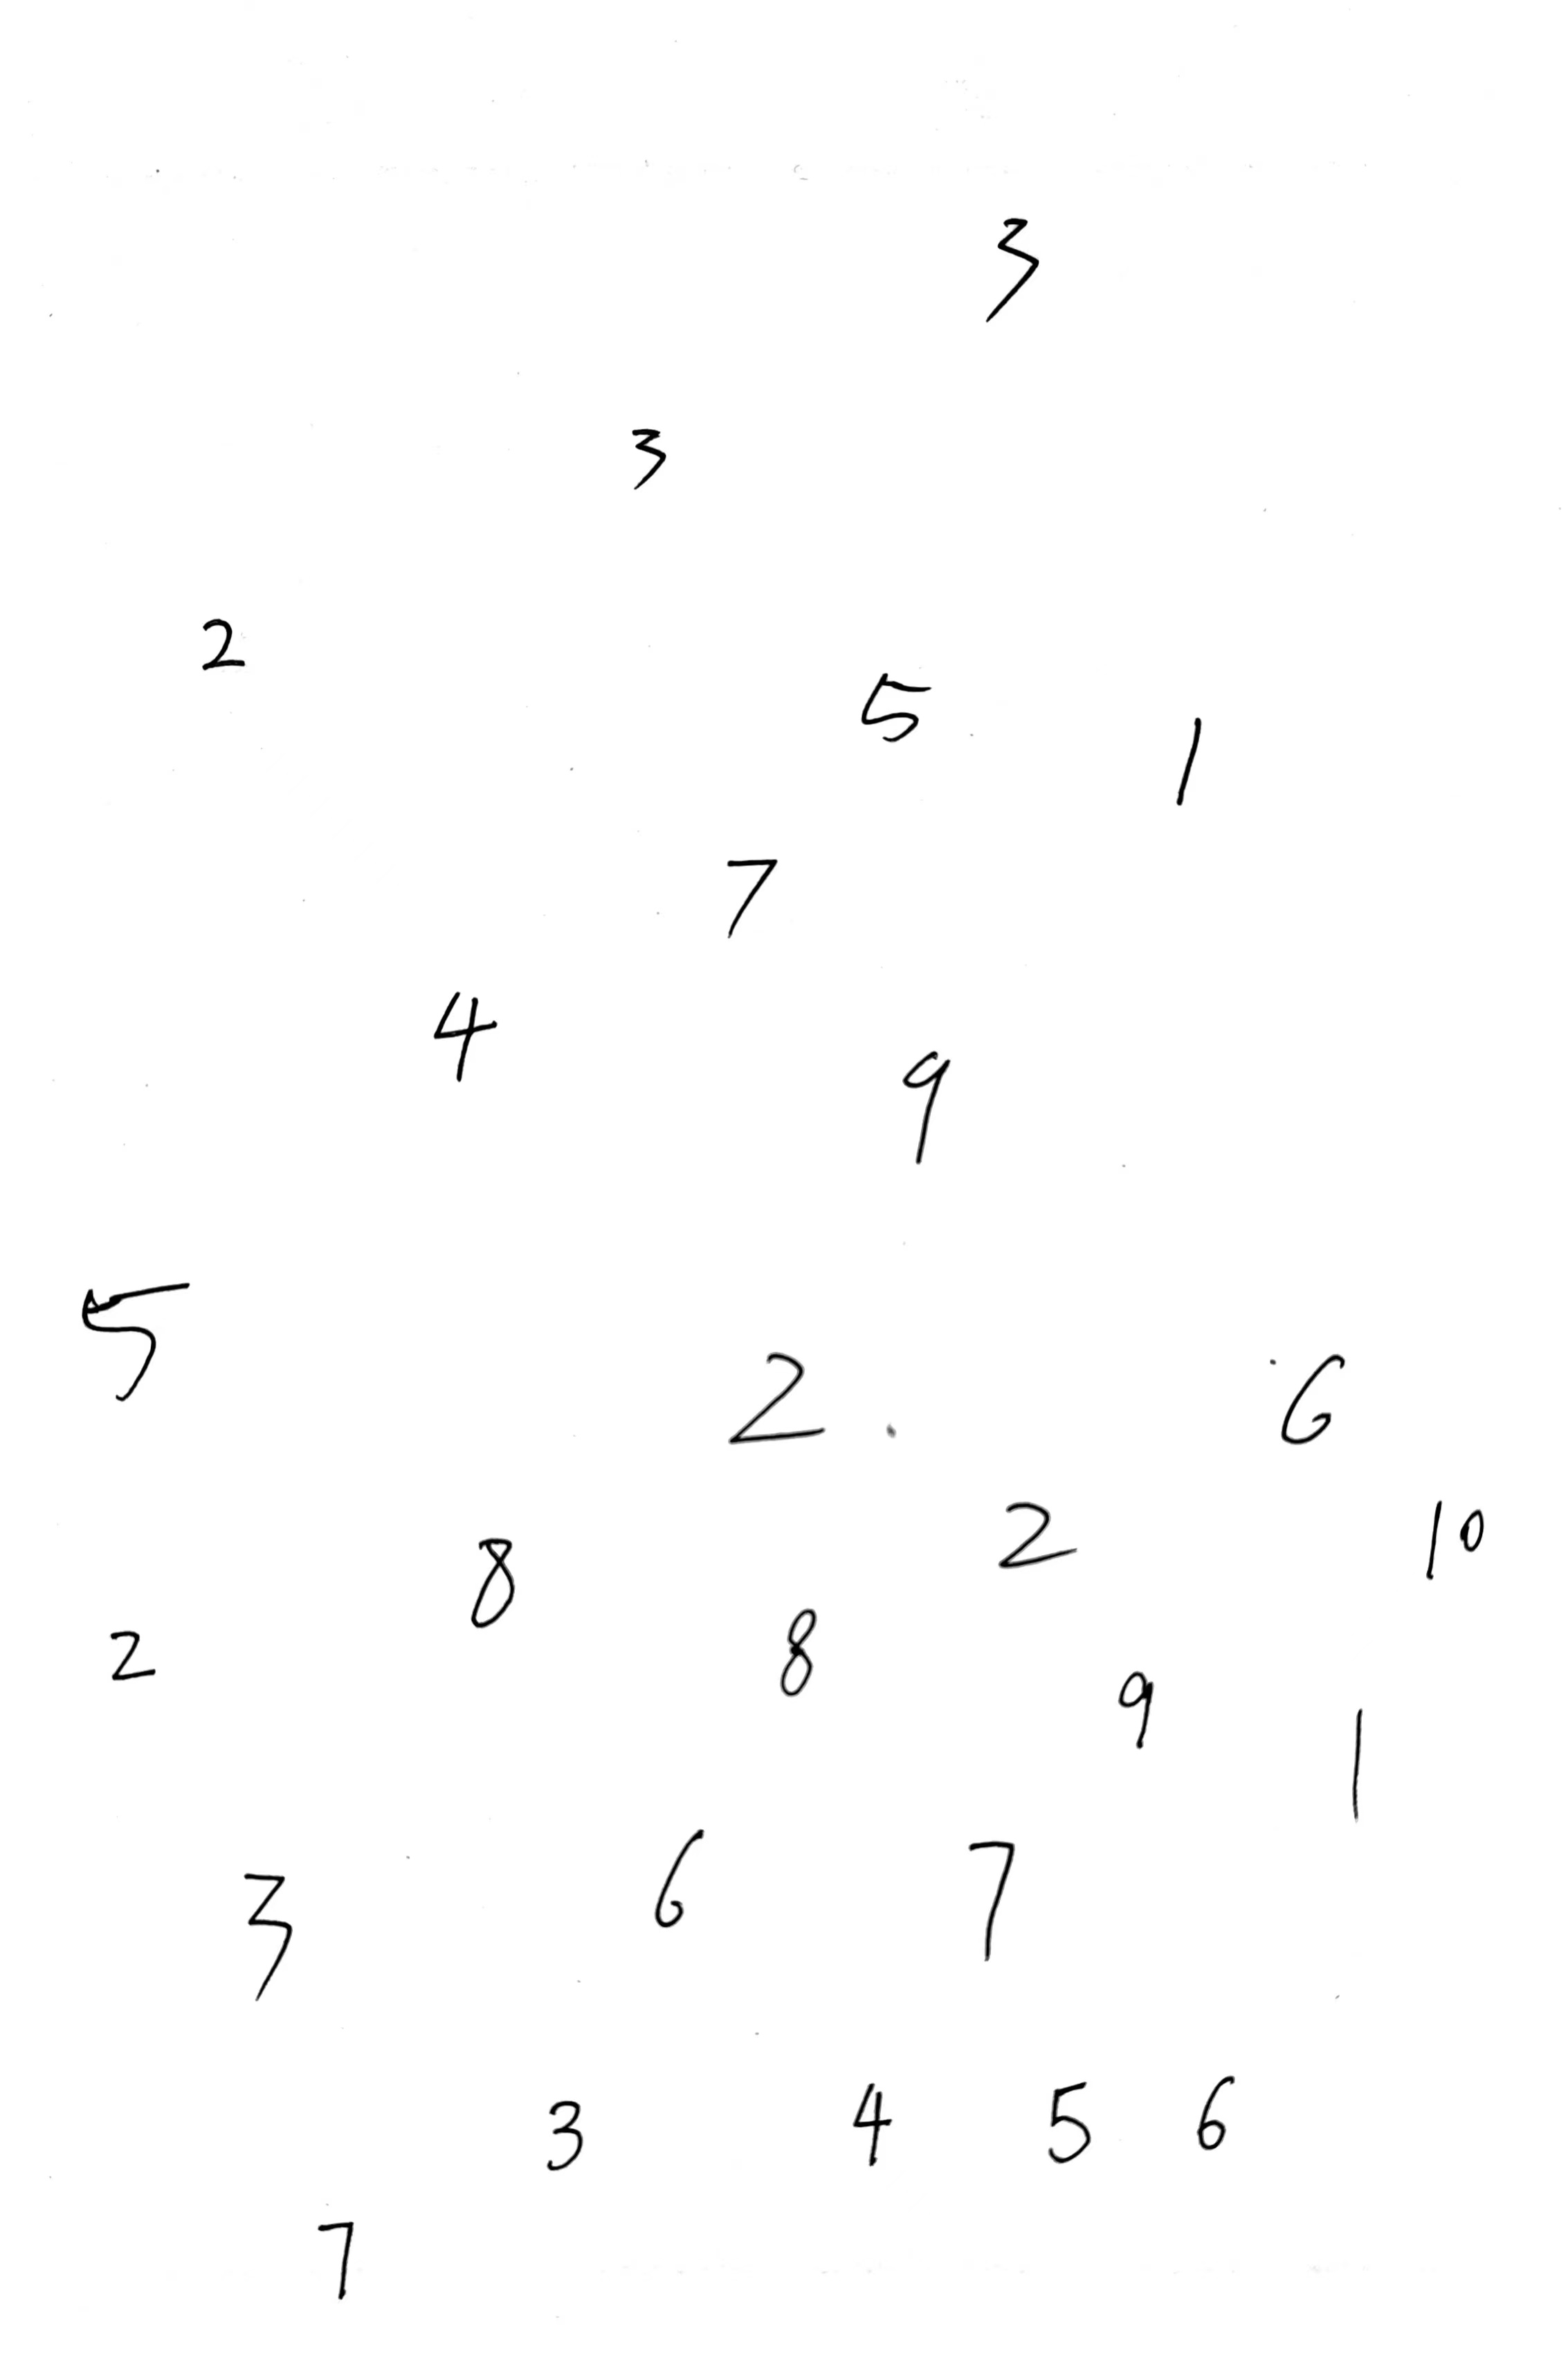 3
3
2
5 1
7
4 9
5
2. 6
8 2 10
2 8 9 1
3 6 7
3 4 5 6
7